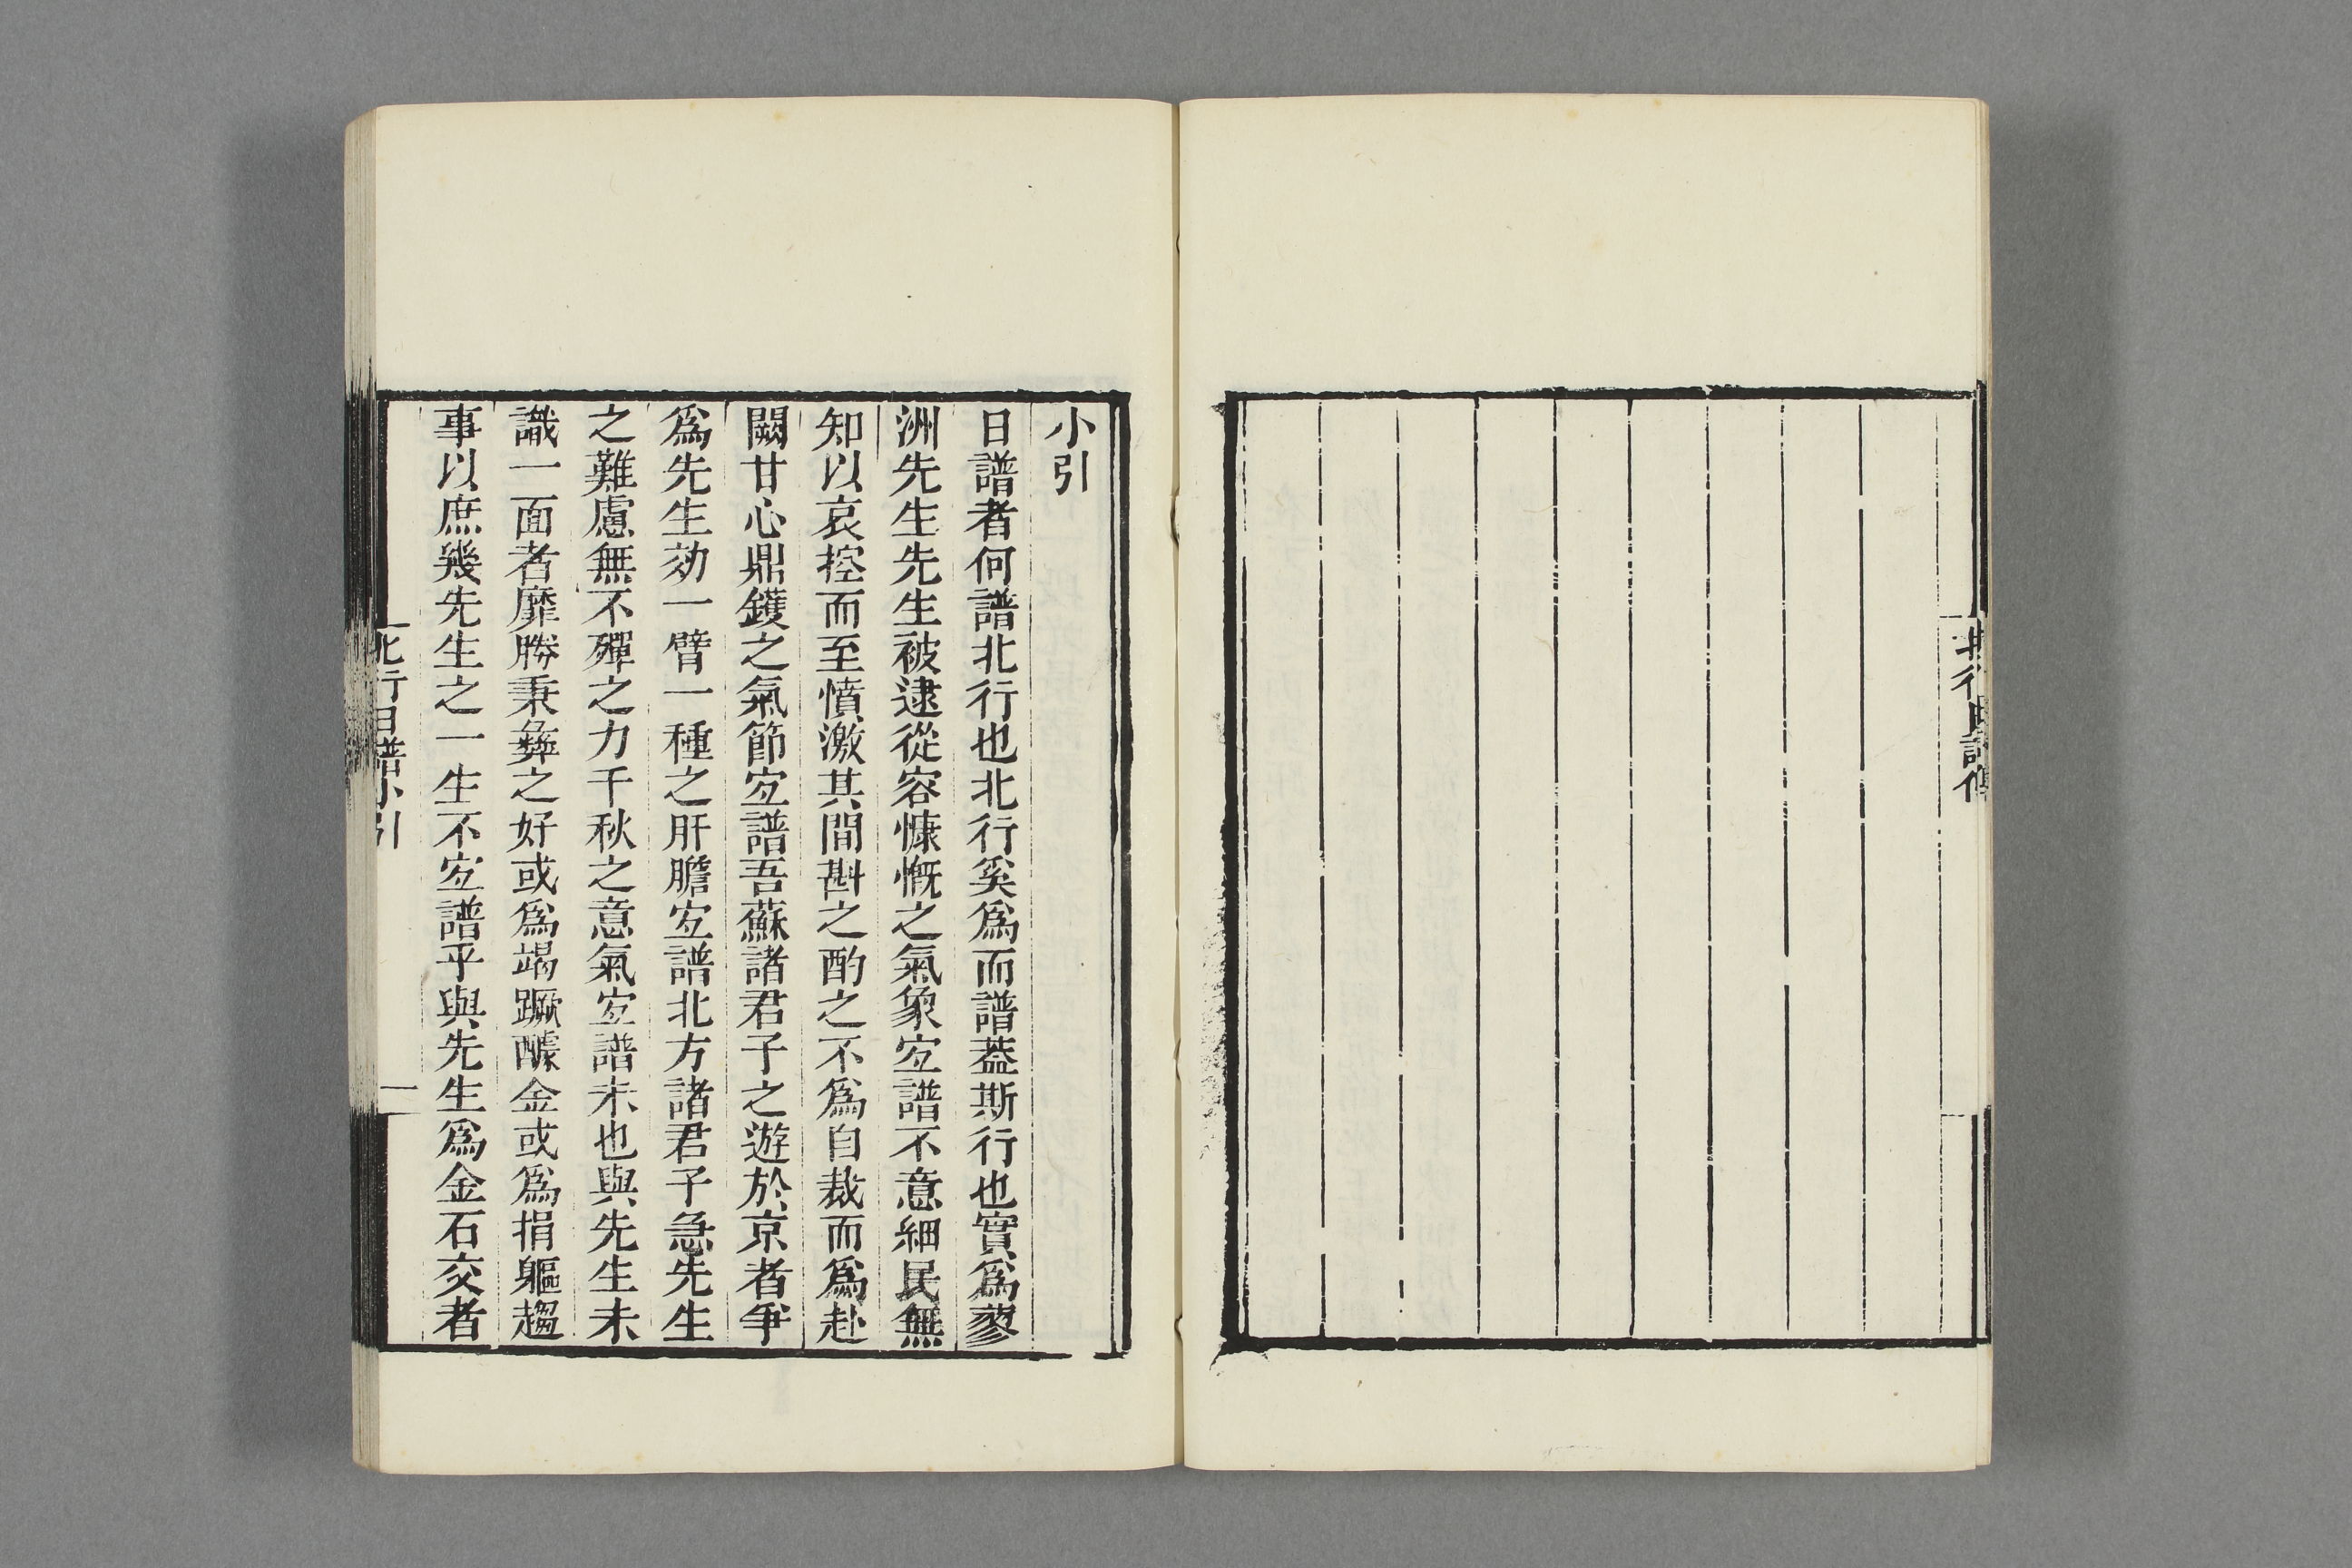 北行日譜傳
小引
日譜者何譜北行也北行奚爲而譜葢斯行也實爲蓼
洲先生先生被逮從容慷慨之氣象宐譜不意細民無
知以哀控而至憤激其間斟之酌之不爲自裁而爲赴
闕甘心鼎鑊之氣節宐譜吾蘇諸君子之遊於京者爭
爲先生効一臂一種之肝膽宐譜北方諸君子急先生
之難慮無不殫之力千秋之意氣宐譜未也與先生未
識一面者靡勝秉彝之好或爲竭蹶醵金或爲捐軀趨
事以庶幾先生之一生不宐譜乎與先生爲金石交者
北行日譜小引
一